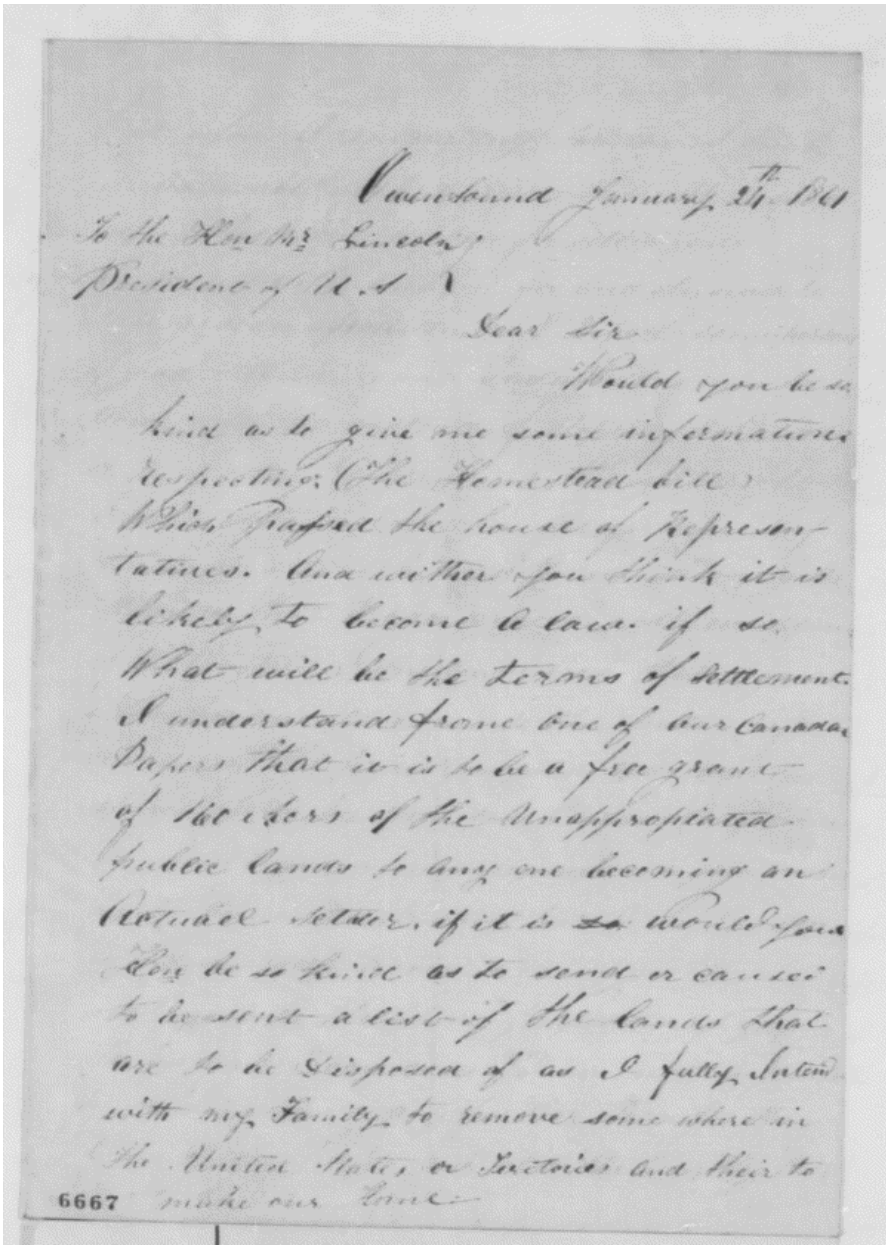 Owen Sound January 24th 1861
To the Hon Mr Lincoln
President of U. S
Dear Sir
Would you be so
kind as to give me some information
respecting (The Homestead bill)
Which Passed the house of Represen-
tatives. And wither you think it is
likely to become a law. if so.
What will be the terms of settlement.
I understand frome one of our Canada
Papers that it is to be a free grant
of 160 Akers of the Unappropiated
public lands to any one becoming an
Actuael settler. if it is so would your
Hon be so kind as to send or cause
to be sent a list of the lands that
are to be Disposed of as I fully Intend
with my Family to remove some where in
the United States or Teritories and their to
make our home
6667